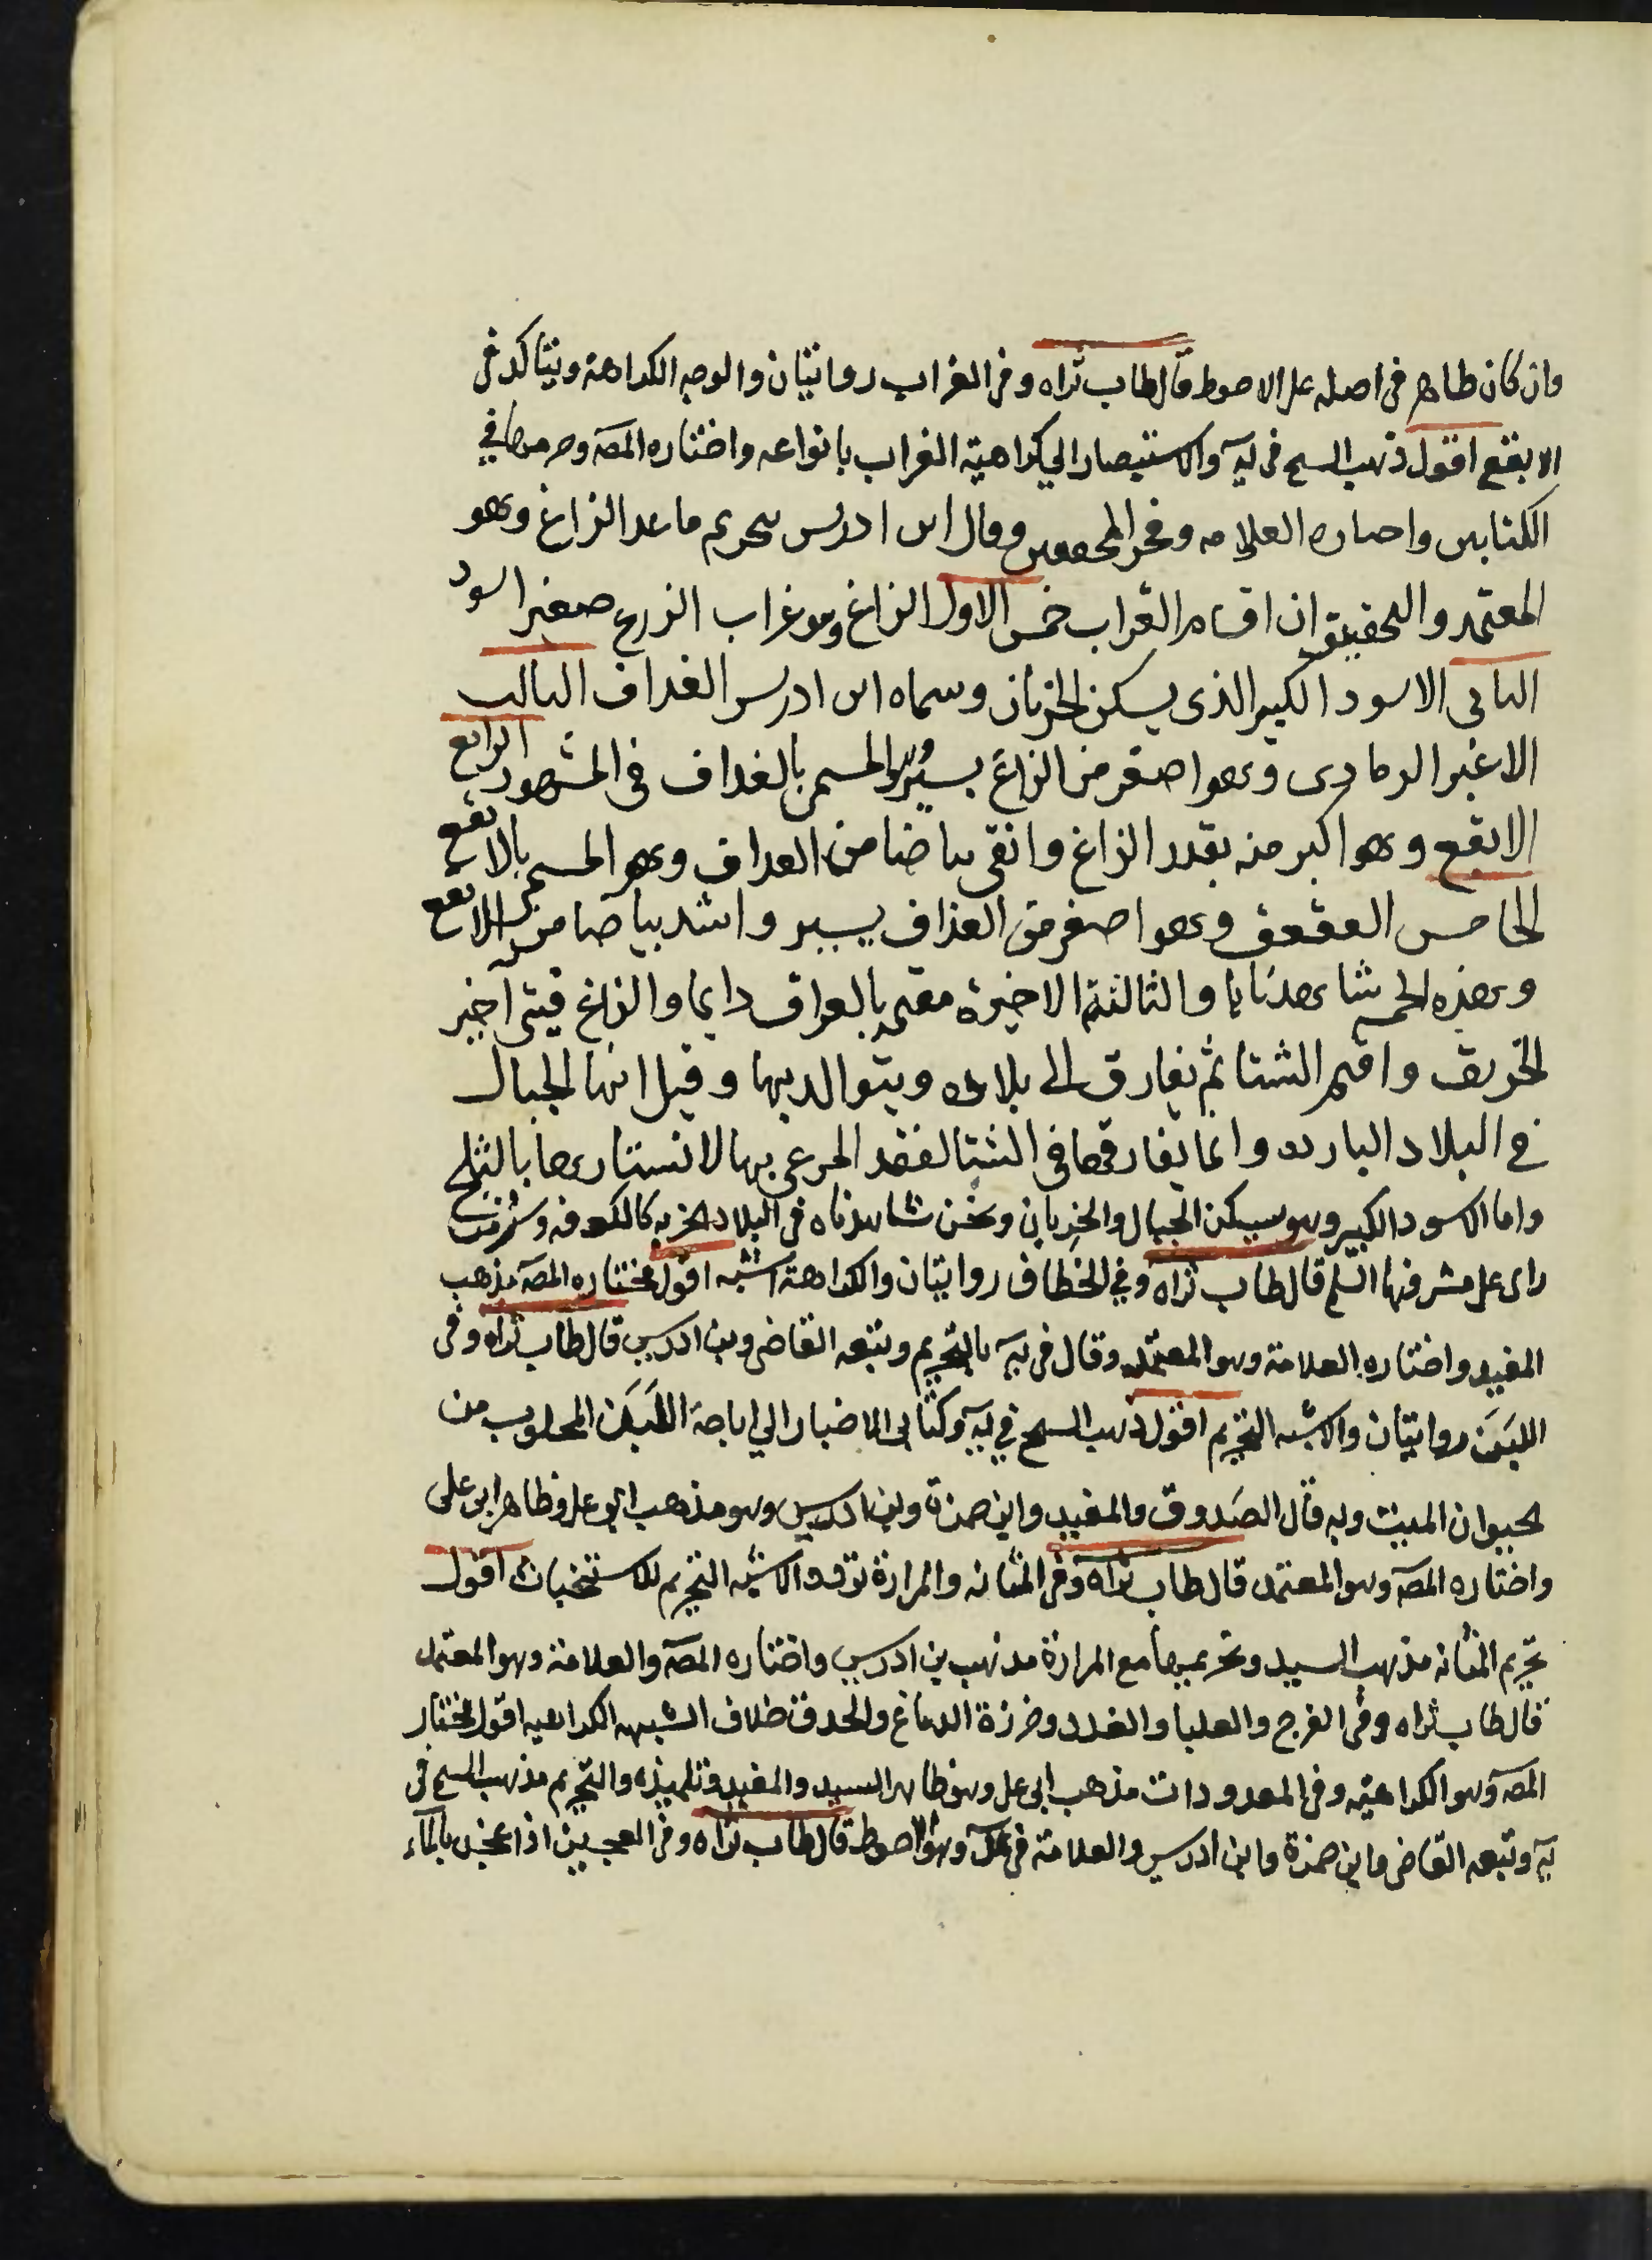 وان كان طاهر فى اصله على الاحوط قال طاب ثراه وفى الغراب روايتان والوجه الكراهة ويتاكد فى
الابقع اقول ذهب الشيخ فى يه والاستبصار الى كراهية الغراب بانواعه واختاره المص وحرمها فى
الكتابين واختاره العلامه وفخر المحققين وقال ابن ادريس بتحريم ما عدا الزاغ وهو
المعتمد والتحقيق ان اقسام الغراب خمس الاول الزاغ وهو غراب الزرع صغير اسود
الثانى الاسود الكبير الذى يسكن الخربان وسماه ابن ادريس الغداف الثالث
الاغبر الرمادى وهو اصغر من الزاغ بيسير والمسمى بالغداف فى المشهور الرابع
الابقع وهو اكبر منه بقدر الزاغ وانقى بياضا من الغداف وهو المسمى بالابقع
الخامس العقعق وهو اصغر من الغداف بيسير واشد بياضا من الابقع
وهذه الخمسة شاهدناها والثالثة الاخيرة مقيم بالعراق دايما والزاغ فيتى اخير
الخريف واقم الشتا ثم يفارق الى بلاده ويتوالد بها وقيل انها الجبال
فى البلاد البارده وانما يفارقها فى الشتا لفقد المرعى بها لانستارها بالثلج
واما الاسود الكبير وهو يسكن الجبال والخربان ونحن شاهدناه فى البلاد الخربه كالكوفه و
راى على مشرفها السلم قال طاب ثراه وفى الخطاف روايتان والكراهة اشبه اقول مختاره المص مذهب
المفيد واختاره العلامة وهو المعتمد وقال فى يه بالتحريم وتبعه القاضى وبن ادريس قال طاب ثراه وفى
اللبن روايتان والاشبه التحريم اقول ذهب الشيخ فى يه وكتابى الاخبار الى اباحة اللبن المحلوب من
لحيوان الميت وبه قال الصدوق والمفيد وابن حمزة وبن ادريس وهو مذهب ابو على وظاهر ابى على
واختاره المص وهو المعتمد قال طاب ثراه وفى المثانه والمرارة تردد الاشبه التحريم للاستخباث اقول
تحريم المثانه مذهب السيد وتحريمها مع المرارة مذهب بن ادريس واختاره المص والعلامة وهو المعتمد
قال طاب ثراه وفى الفرج والعلبا والغدد وخرزة الدماغ والحدق خلاف اشبهه الكراهيه اقول مختار
المص وهو الكراهيه وفى المعدودات مذهب ابى على وهو ظاهر السيد والمفيد وتلميذه والتحريم مذهب الشيخ فى
يه وتبعه القاضى وابن حمزة وابن ادريس والعلامة فى وهو الاحوط قال طاب ثراه وفى العجين اذا عجن بالماء